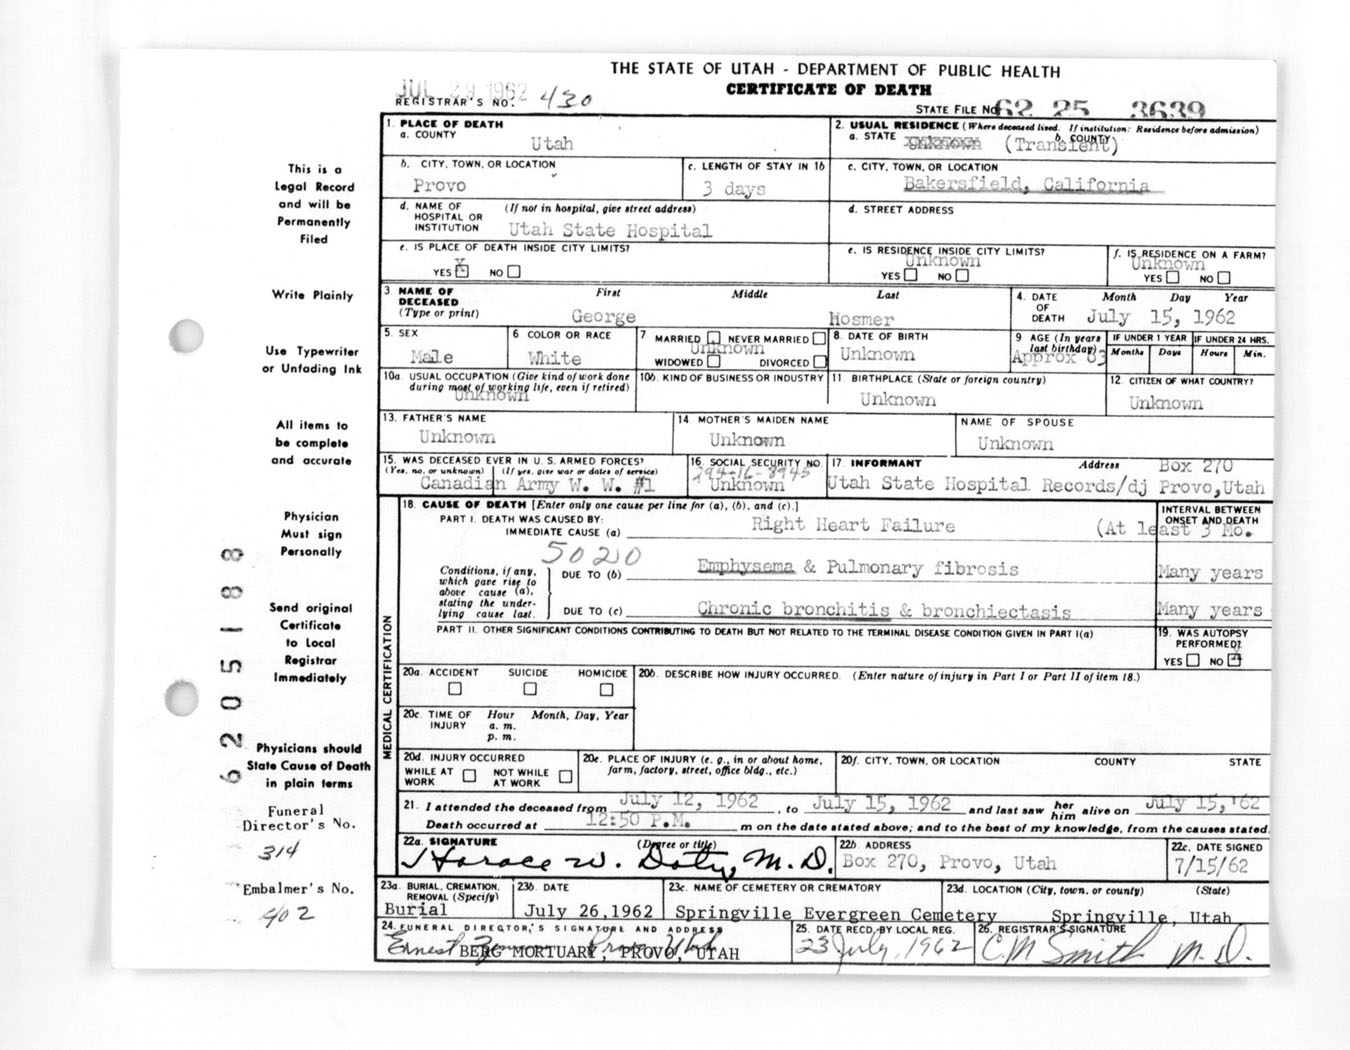 THE STATE OF UTAH - DEPARTMENT OF PUBLIC HEALTH
CERTIFICATE OF DEATH
JUL 29 1962
REGISTRAR'S NO. 430
STATE FILE NO. 62 25 3639
This is a
Legal Record
and will be
Permanently
Filed
Write Plainly
Use Typewriter
or Unfading Ink
All items to
be complete
and accurate
Physician
Must sign
Personally
Send original
Certificate
to Local
Registrar
Immediately
Physicians should
State Cause of Death
in plain terms
Funeral
Director's No.
314
Embalmer's No.
402
6205188
1. PLACE OF DEATH
a. COUNTY
Utah
2. USUAL RESIDENCE (Where deceased lived. If institution: Residence before admission)
a. STATE Unknown (Transient) b. COUNTY
b. CITY, TOWN, OR LOCATION
Provo
c. LENGTH OF STAY IN 1b
3 days
c. CITY, TOWN, OR LOCATION
Bakersfield, California
d. NAME OF HOSPITAL OR INSTITUTION (If not in hospital, give street address)
Utah State Hospital
d. STREET ADDRESS
e. IS PLACE OF DEATH INSIDE CITY LIMITS?
YES X NO
e. IS RESIDENCE INSIDE CITY LIMITS?
Unknown
YES NO
f. IS RESIDENCE ON A FARM?
Unknown
YES NO
3. NAME OF DECEASED (Type or print)
First Middle Last
George Hosmer
4. DATE OF DEATH Month Day Year
July 15, 1962
5. SEX
Male
6 COLOR OR RACE
White
7 MARRIED NEVER MARRIED
Unknown
WIDOWED DIVORCED
8. DATE OF BIRTH
Unknown
9 AGE (In years last birthday)
Approx 63
IF UNDER 1 YEAR IF UNDER 24 HRS.
Months Days Hours Min.
10a. USUAL OCCUPATION (Give kind of work done during most of working life, even if retired)
Unknown
10b. KIND OF BUSINESS OR INDUSTRY
11. BIRTHPLACE (State or foreign country)
Unknown
12. CITIZEN OF WHAT COUNTRY?
Unknown
13. FATHER'S NAME
Unknown
14 MOTHER'S MAIDEN NAME
Unknown
NAME OF SPOUSE
Unknown
15. WAS DECEASED EVER IN U. S. ARMED FORCES?
(Yes, no, or unknown) (If yes, give war or dates of service)
Canadian Army W. W. #1
16. SOCIAL SECURITY NO.
Unknown
17. INFORMANT Address
Box 270
Utah State Hospital Records/dj Provo, Utah
MEDICAL CERTIFICATION
18. CAUSE OF DEATH [Enter only one cause per line for (a), (b), and (c).]
INTERVAL BETWEEN ONSET AND DEATH
PART I. DEATH WAS CAUSED BY:
IMMEDIATE CAUSE (a) Right Heart Failure (At least 3 Mo.
5020
Conditions, if any, which gave rise to above cause (a), stating the underlying cause last.
DUE TO (b) Emphysema & Pulmonary fibrosis Many years
DUE TO (c) Chronic bronchitis & bronchiectasis Many years
PART II. OTHER SIGNIFICANT CONDITIONS CONTRIBUTING TO DEATH BUT NOT RELATED TO THE TERMINAL DISEASE CONDITION GIVEN IN PART I(a)
19. WAS AUTOPSY PERFORMED?
YES NO X
20a. ACCIDENT SUICIDE HOMICIDE
20b. DESCRIBE HOW INJURY OCCURRED. (Enter nature of injury in Part I or Part II of item 18.)
20c. TIME OF INJURY Hour Month, Day, Year
a. m.
p. m.
20d. INJURY OCCURRED
WHILE AT WORK NOT WHILE AT WORK
20e. PLACE OF INJURY (e. g., in or about home, farm, factory, street, office bldg., etc.)
20f. CITY, TOWN, OR LOCATION COUNTY STATE
21. I attended the deceased from July 12, 1962, to July 15, 1962 and last saw her him alive on July 15, '62
Death occurred at 12:50 P.M. m on the date stated above; and to the best of my knowledge, from the causes stated.
22a. SIGNATURE (Degree or title)
Horace W. Doty, M.D.
22b. ADDRESS
Box 270, Provo, Utah
22c. DATE SIGNED
7/15/62
23a. BURIAL, CREMATION, REMOVAL (Specify)
Burial
23b. DATE
July 26, 1962
23c. NAME OF CEMETERY OR CREMATORY
Springville Evergreen Cemetery
23d. LOCATION (City, town, or county) (State)
Springville, Utah
24. FUNERAL DIRECTOR'S SIGNATURE AND ADDRESS
Ernest Provo Utah
BERG MORTUARY, PROVO, UTAH
25. DATE RECD. BY LOCAL REG.
23 July, 1962
26. REGISTRAR'S SIGNATURE
C M Smith M. D.